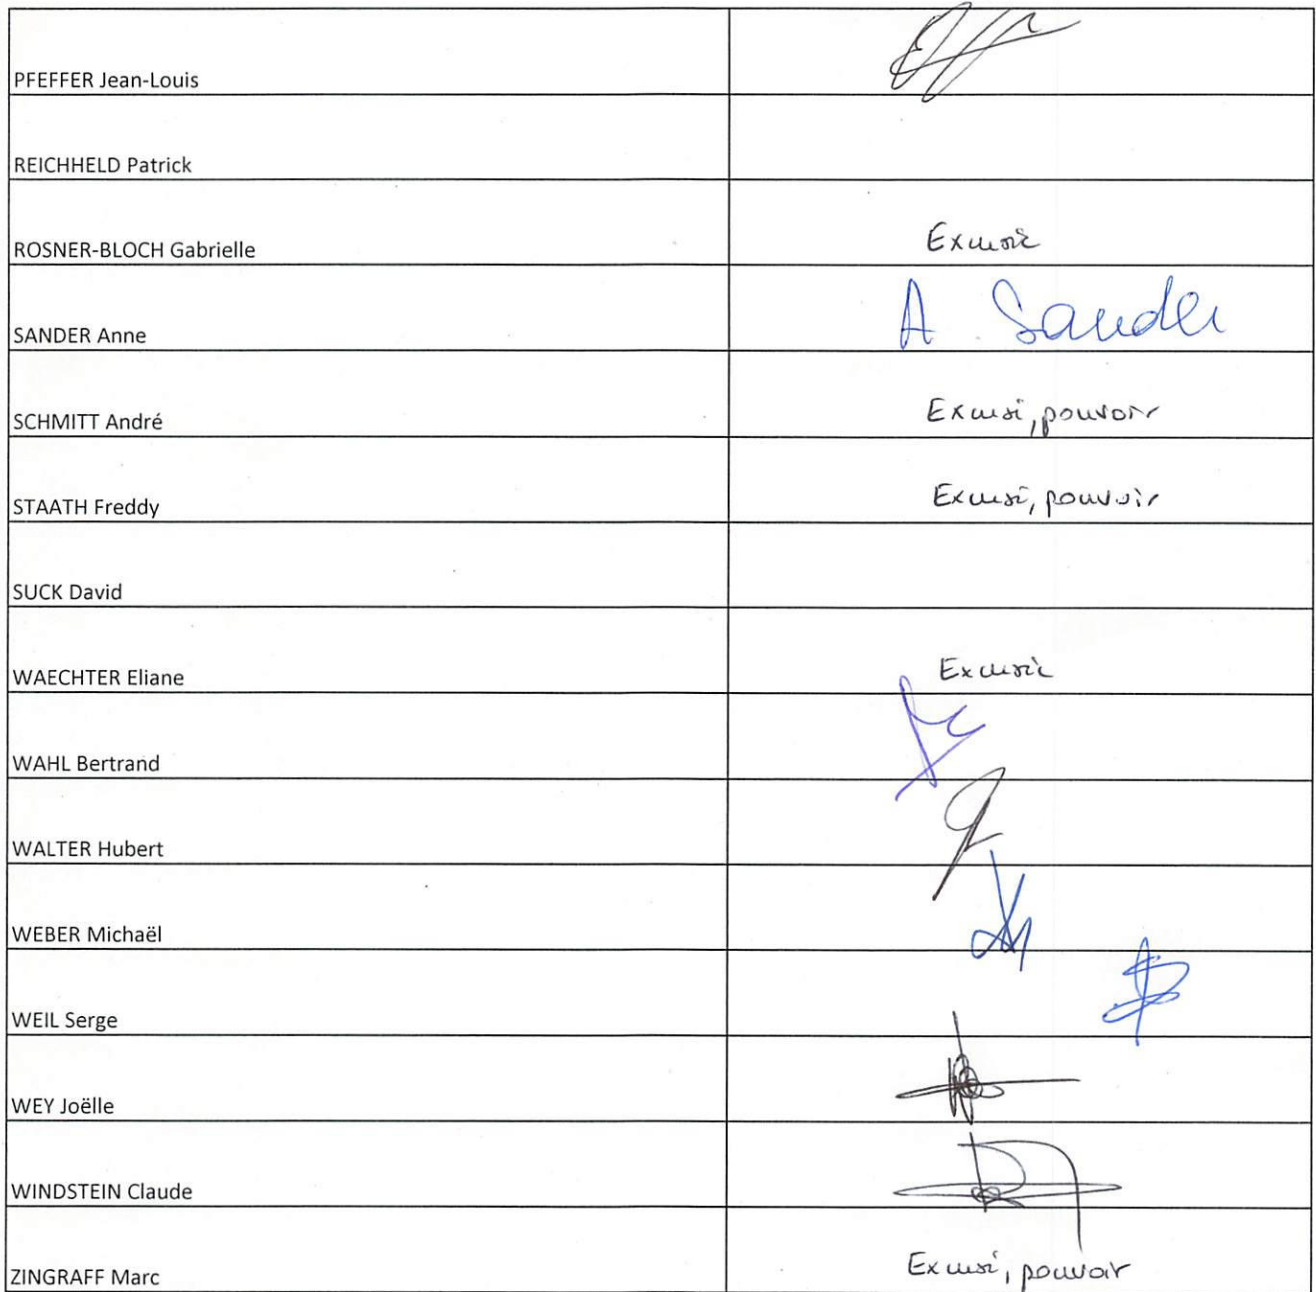 PFEFFER Jean-Louis
REICHHELD Patrick
ROSNER-BLOCH Gabrielle
Excusée
SANDER Anne
A Sander
SCHMITT André
Excusé, pouvoir
STAATH Freddy
Excusé, pouvoir
SUCK David
WAECHTER Eliane
Excusée
WAHL Bertrand
WALTER Hubert
WEBER Michaël
WEIL Serge
WEY Joëlle
WINDSTEIN Claude
ZINGRAFF Marc
Excusé, pouvoir